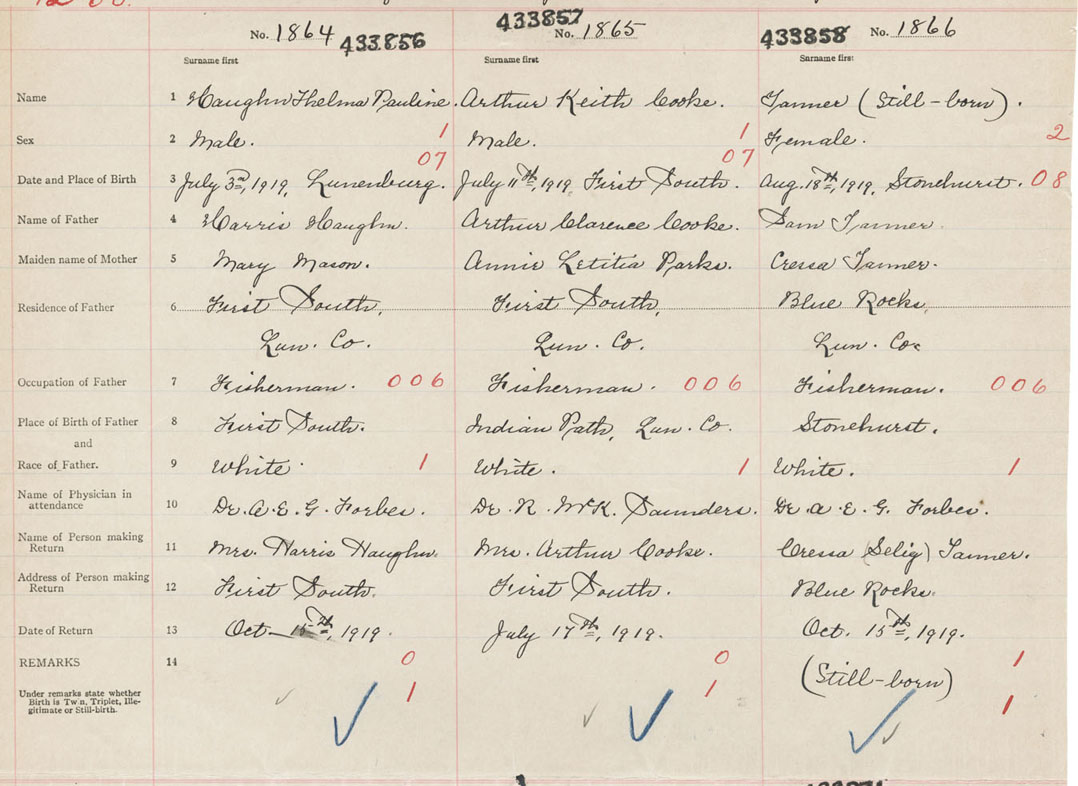 No. 1864 433856 433857 No. 1865 433858 No. 1866
Surname first Surname first Surname first
Name 1 Haughn Thelma Pauline. Arthur Keith Cooke. Tanner (Still-born).
Sex 2 Male. 1 Male. 1 Female. 2
07 07
Date and Place of Birth 3 July 3rd, 1919, Lunenburg. July 11th, 1919, First South. Aug. 18th, 1919, Stonehurst. 08
Name of Father 4 Harris Haughn. Arthur Clarence Cooke. Sam Tanner.
Maiden name of Mother 5 Mary Mason. Annie Letitia Parks. Cressa Tanner.
Residence of Father 6 First South, First South, Blue Rocks,
Lun. Co. Lun. Co. Lun. Co.
Occupation of Father 7 Fisherman. 006 Fisherman. 006 Fisherman. 006
Place of Birth of Father 8 First South. Indian Path, Lun. Co. Stonehurst.
and
Race of Father. 9 White. 1 White. 1 White. 1
Name of Physician in attendance 10 Dr. A. E. G. Forbes. Dr. R. McK. Saunders. Dr. A. E. G. Forbes.
Name of Person making Return 11 Mrs. Harris Haughn. Mrs. Arthur Cooke. Cressa (Selig) Tanner.
Address of Person making Return 12 First South. First South. Blue Rocks.
Date of Return 13 Oct. 15th, 1919. July 17th, 1919. Oct. 15th, 1919.
REMARKS 14 0 0 (Still-born) 1
Under remarks state whether Birth is Twin, Triplet, Ille-
gitimate or Still-birth. 1 1 1